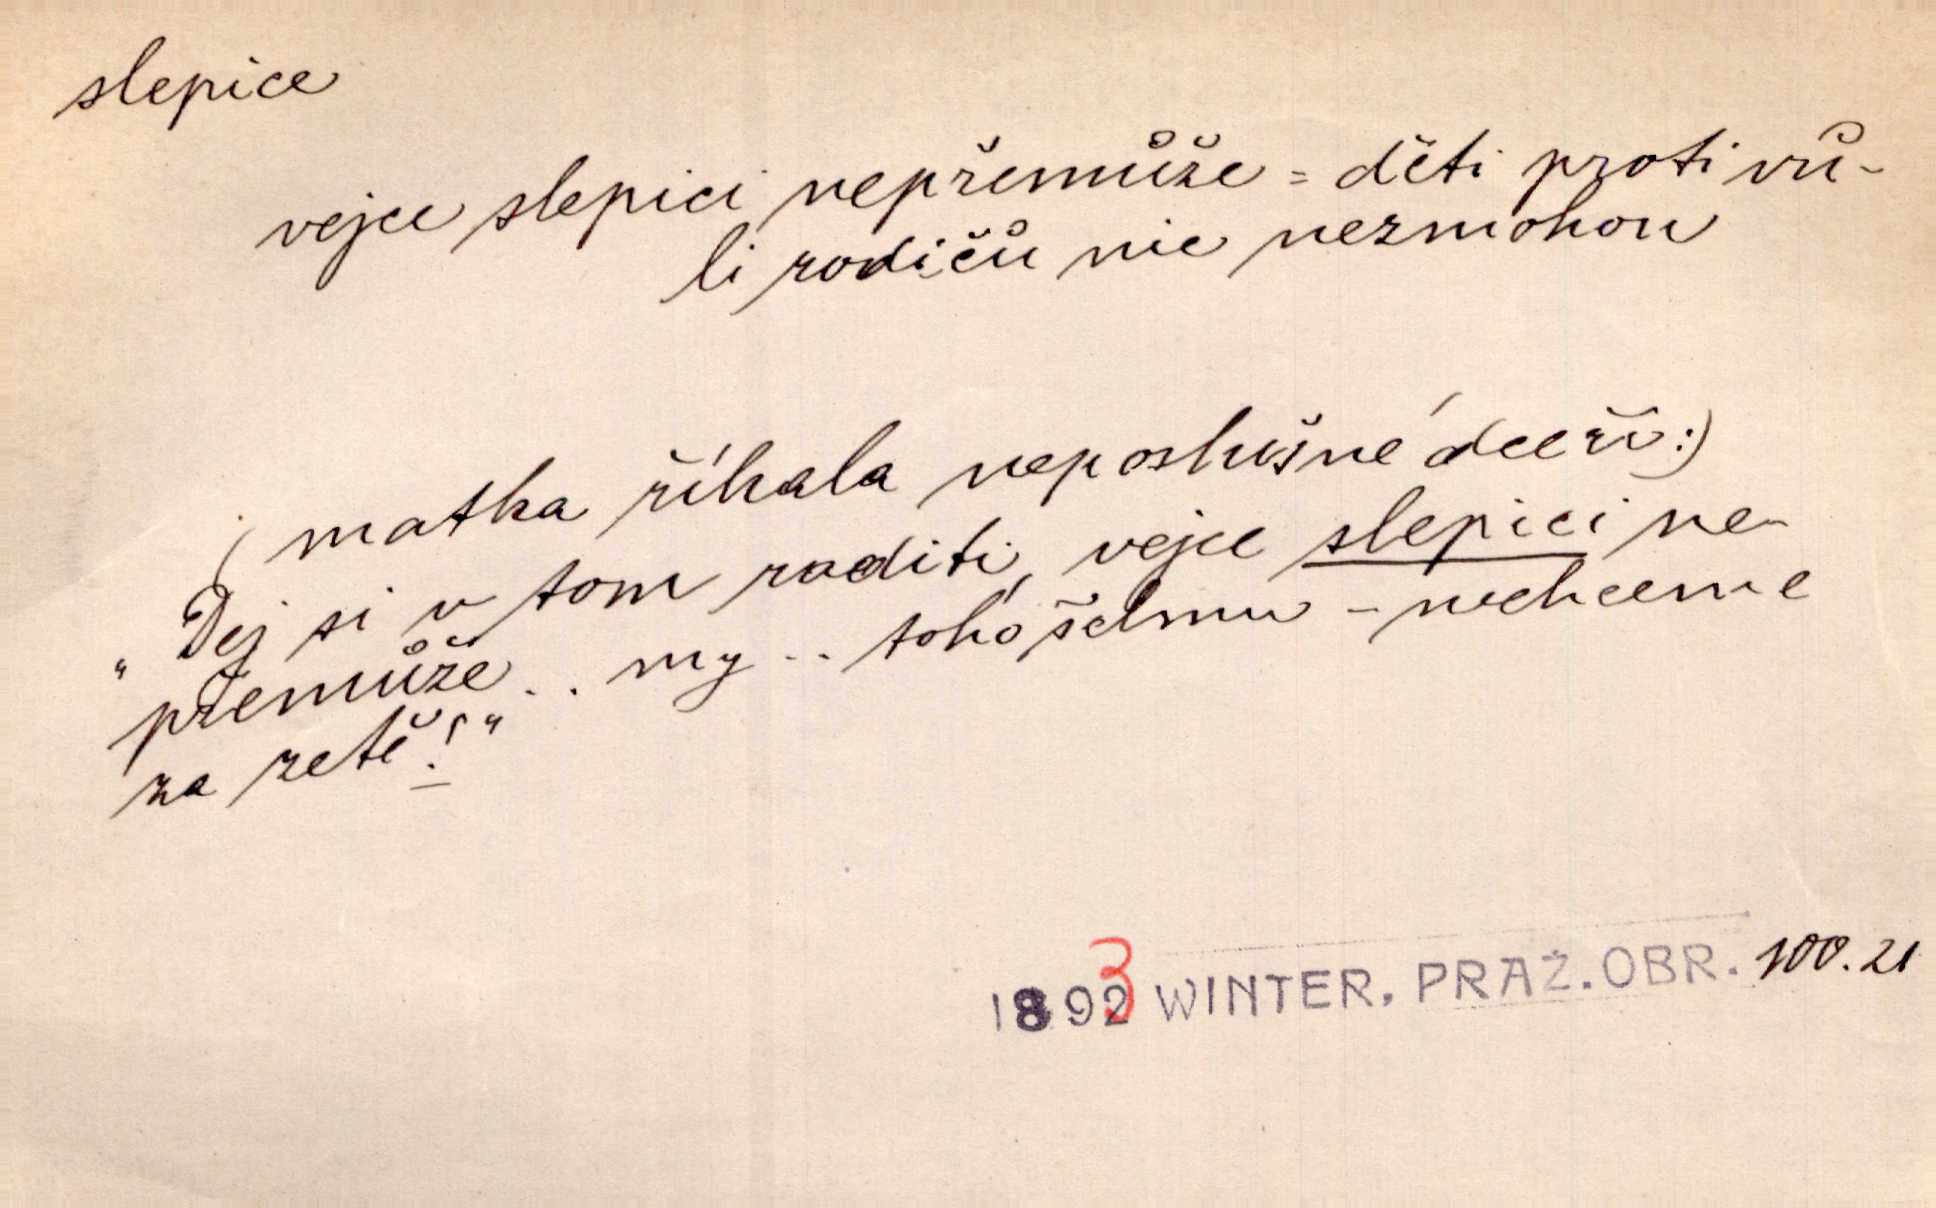 slepice
vejce slepici nepřemůže = děti proti vů-
li rodičů nic nezmohou
(matka říkala neposlušné dceři:)
„Dej si v tom raditi, vejce slepici ne-
přemůže.. my .. toho šelmu - nechceme
za zetě!"
1893 WINTER, PRAŽ. OBR. 100.21